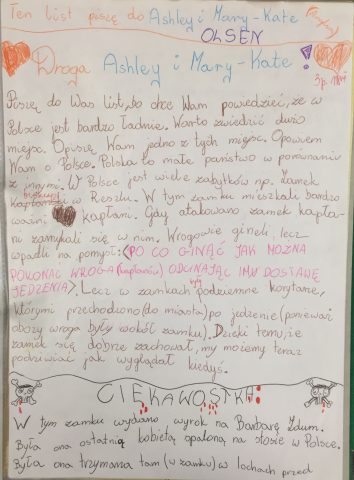 Ten list piszę do Ashley i Mary-Kate
OLSEN
Droga Ashley i Mary-Kate!
Piszę do Was list, bo chcę Wam powiedzieć, że w
Polsce jest bardzo ładnie. Warto zwiedzić dużo
miejsc. Opiszę Wam jedno z tych miejsc. Opowiem
Wam o Polsce. Polska to małe państwo w porównaniu
z innymi. W Polsce jest wiele zabytków np. Zamek
w Reszlu. W tym zamku mieszkali bardzo
ważni kapłani. Gdy atakowano zamek kapła-
ni zamykali się w nim. Wrogowie gineli, lecz
wpadli na pomysł: <PO CO GINĄĆ JAK MOŻNA
POKONAĆ WROGA (kapłanów) ODCINAJĄC IMU DOSTAWĘ
JEDZENIA> Lecz w zamkach były podziemne korytarze,
którymi przechodzono (do miasta) po jedzenie (ponieważ
obozy wroga były wokół zamku). Dzięki temu, że
zamek się dobrze zachował, my możemy teraz
podziwiać jak wyglądał kiedyś.
CIEKAWOSTKA:
W tym zamku wydano wyrok na Barbarę Zdunk.
Była ona ostatnią kobietą spaloną na stosie w Polsce.
Była ona trzymana tam (w zamku) w lochach przed